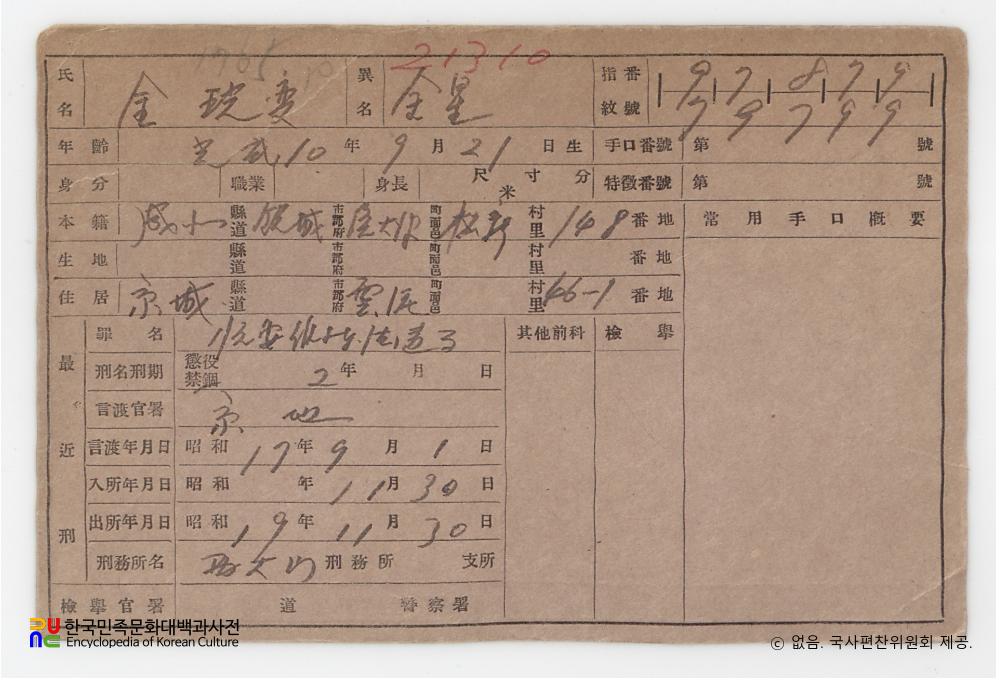 1765 21310
氏名 金 異名 金星 指紋番號 9 7 8 7 9
7 9 7 9 9
年齡 光武 10年 9月 21日生 手口番號 第 號
身分 職業 身長 尺寸分 米 特徵番號 第 號
本籍 咸北 縣道 城 市郡府 町面邑 村里 148 番地 常用手口槪要
生地 縣道 市郡府 町面邑 村里 番地
住居 京城 縣道 市郡府 雲泥 町面邑 村里 66-1 番地
最近刑 罪名 其他前科 檢擧
刑名刑期 懲役 禁錮 2年 月 日
言渡官署 京 地
言渡年月日 昭和 17年 9月 1日
入所年月日 昭和 年 11月 30日
出所年月日 昭和 19年 11月 30日
刑務所名 西大門 刑務所 支所
檢擧官署 道 警察署
한국민족문화대백과사전
Encyclopedia of Korean Culture
ⓒ 없음. 국사편찬위원회 제공.